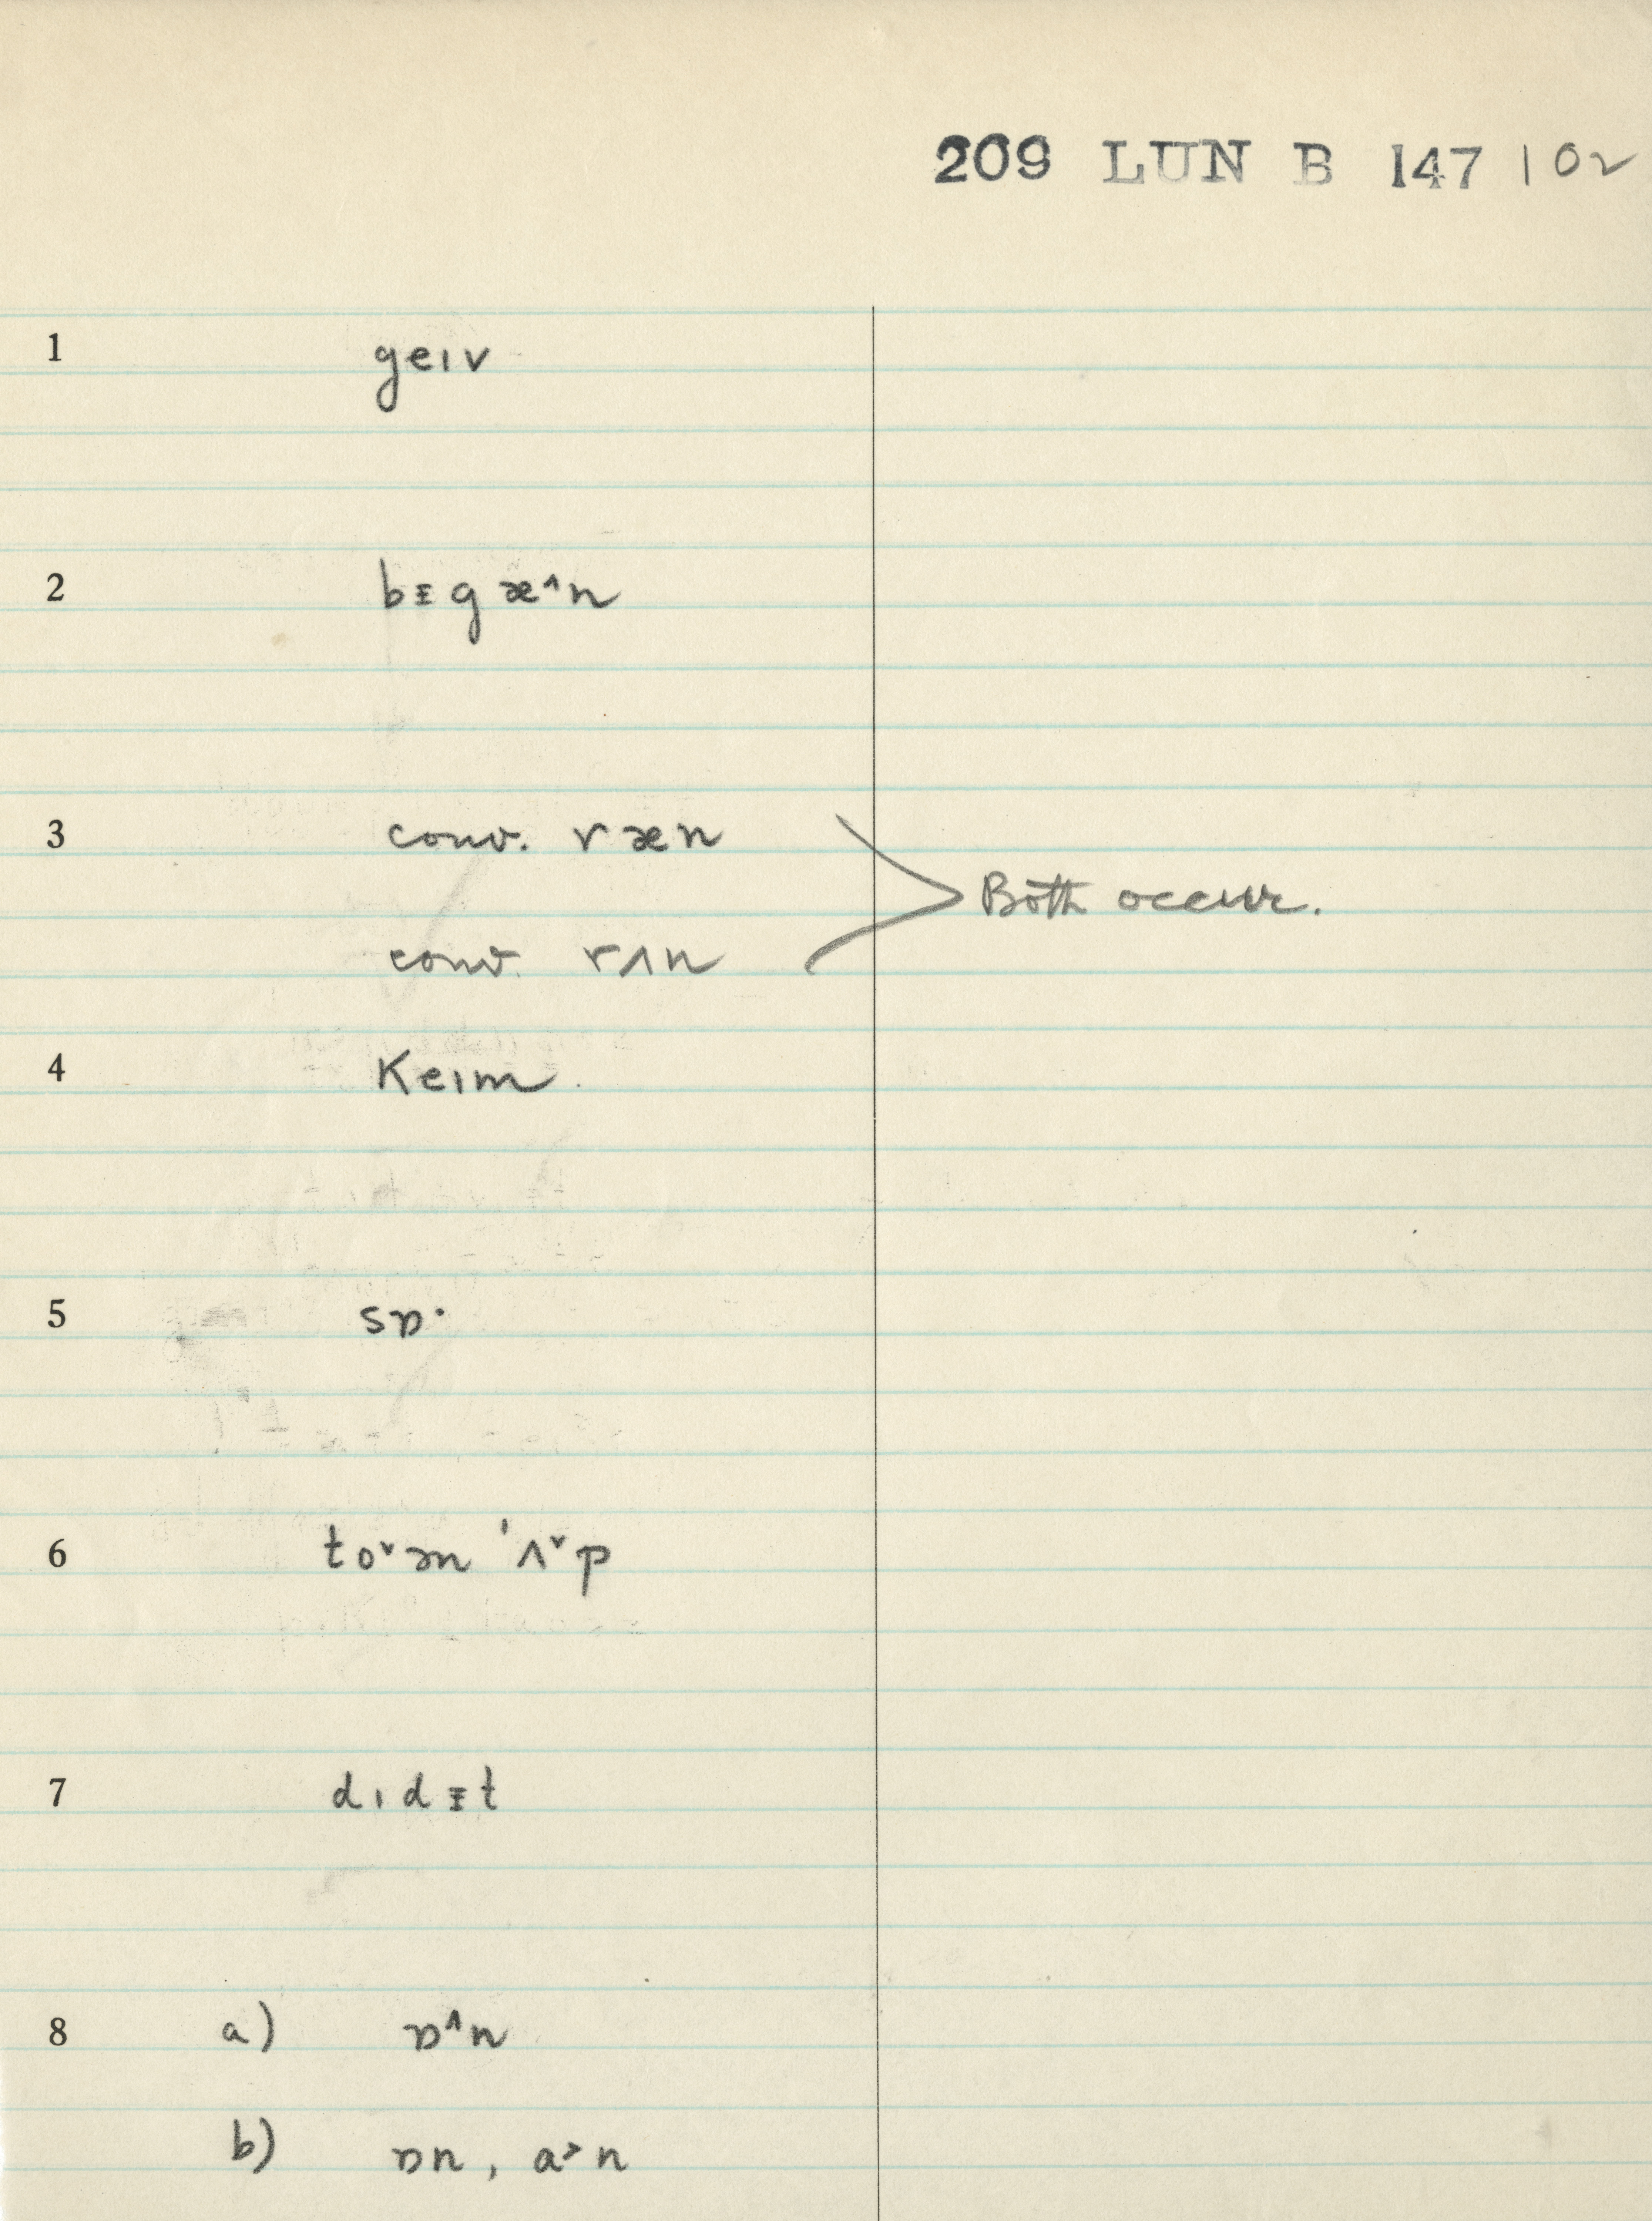 209 LUN B 147 102
1 geɪv
2 bᵻgæ˄n
3 conv. ræn
Both occur.
conv. rʌn
4 Keɪm
5 sɒ·
6 to˅əm ˈʌ˅p
7 dɪdᵻt
8 a) ɒ˄n
b) ɒn, a˃n